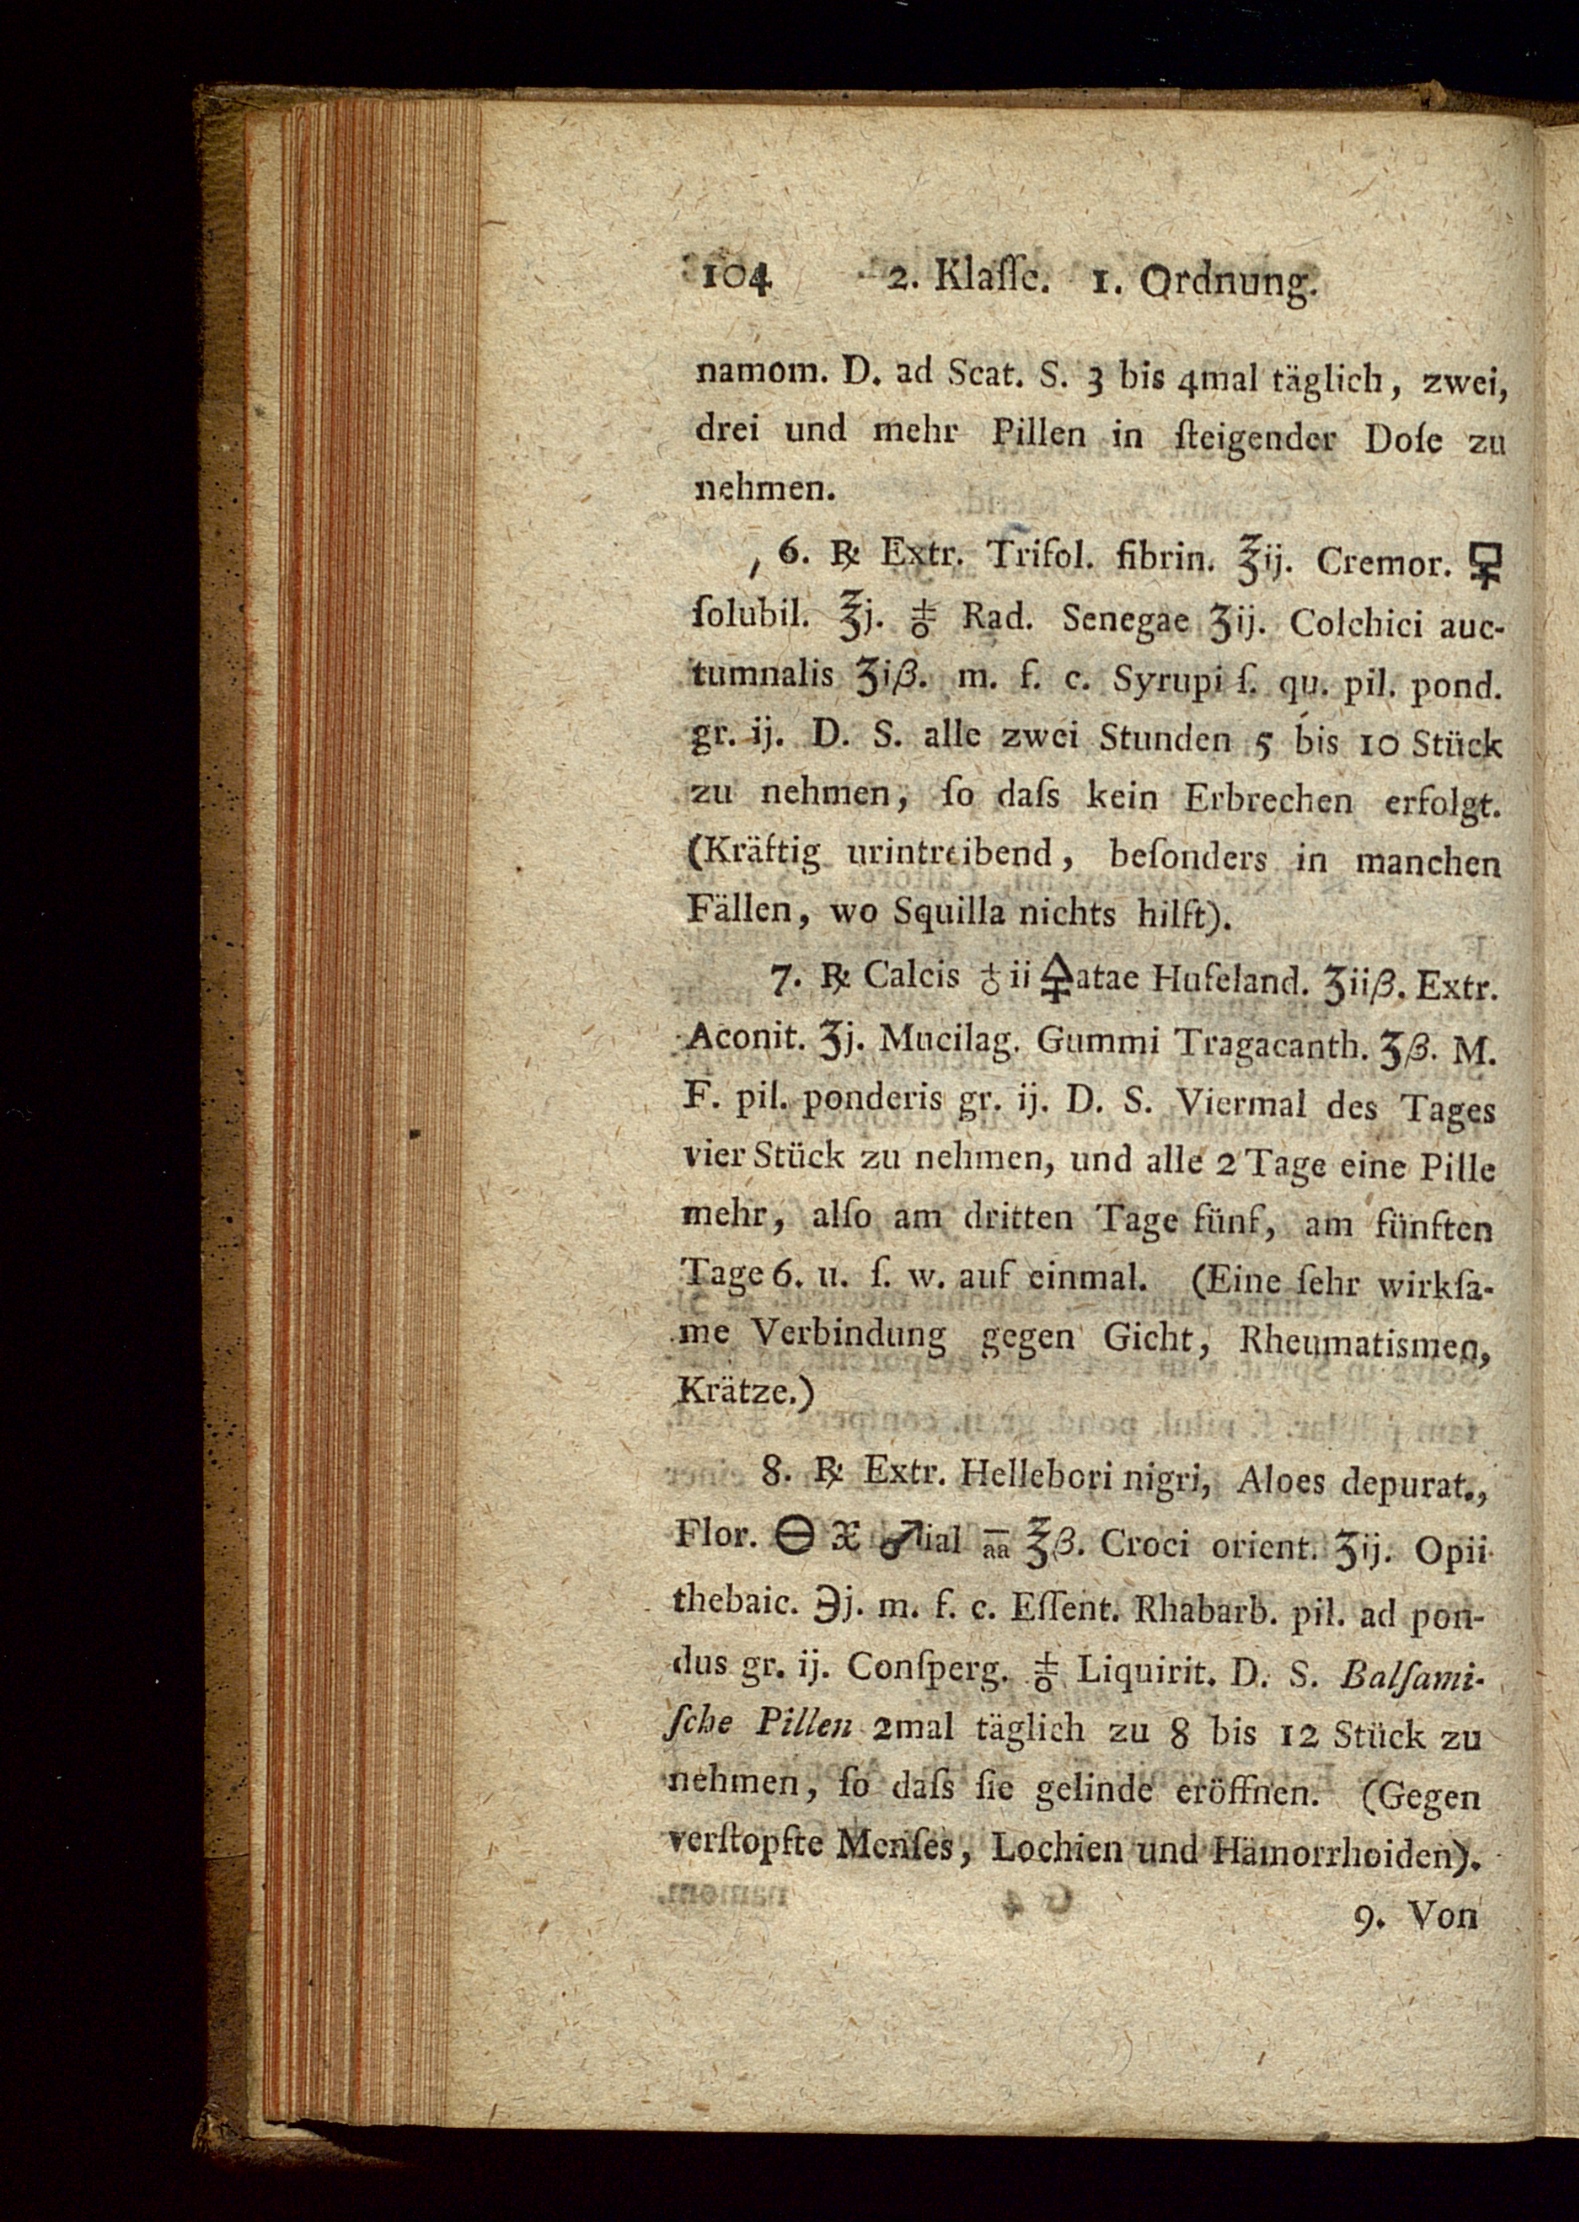 104 2. Klaſſe. 1. Ordnung.
namom. D. ad Scat. S. 3 bis 4mal täglich, zwei,
drei und mehr Pillen in ſteigender Doſe zu
nehmen.
6. ℞ Extr. Trifol. fibrin. ℥ij. Cremor. 🜿
ſolubil. ℥j. ♁ Rad. Senegae ʒij. Colchici auc-
tumnalis ʒiβ. m. f. c. Syrupi ſ. qu. pil. pond.
gr. ij. D. S. alle zwei Stunden 5 bis 10 Stück
zu nehmen, ſo daſs kein Erbrechen erfolgt.
(Kräftig urintreibend, beſonders in manchen
Fällen, wo Squilla nichts hilft).
7. ℞ Calcis ♁ii 🜍atae Hufeland. ʒiiβ. Extr.
Aconit. ʒj. Mucilag. Gummi Tragacanth. ʒβ. M.
F. pil. ponderis gr. ij. D. S. Viermal des Tages
vier Stück zu nehmen, und alle 2 Tage eine Pille
mehr, alſo am dritten Tage fünf, am fünften
Tage 6. u. ſ. w. auf einmal. (Eine ſehr wirkſa-
me Verbindung gegen Gicht, Rheumatismen,
Krätze.)
8. ℞ Extr. Hellebori nigri, Aloes depurat.,
Flor. 🜔 🞶 ♂ial aa ℥β. Croci orient. ʒij. Opii
thebaic. ℈j. m. f. c. Eſſent. Rhabarb. pil. ad pon-
dus gr. ij. Conſperg. Liquirit. D. S. Balſami-
ſche Pillen 2mal täglich zu 8 bis 12 Stück zu
nehmen, ſo daſs ſie gelinde eröffnen. (Gegen
verſtopfte Menſes, Lochien und Hämorrhoiden).
9. Von